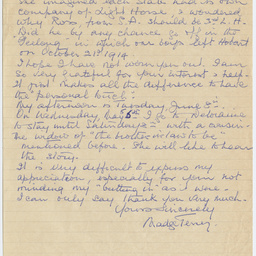 we imagined each State had its own
company of Light Horse. I wondered
why Ross, from S.A. should be 3rd L.H.
Did he by any chance go off in the
"Geelong" in which our boys left Hobart
on October 21st 1914.
I hope I have not worn you out. I am
so very grateful for your interest & help.
It just makes all the difference to have
the personal touch.
My afternoon is Tuesday June 5th.
On Wednesday I go to Melbourne
to stay until Saturday - with a cousin-
the widow of the brother-in-law to be
mentioned before. She will like to hear
the story.
It is very difficult to express my
appreciation, especially for your not
minding my "butting in" as it were.
I can only say Thank you very much.
Yours sincerely
Madge